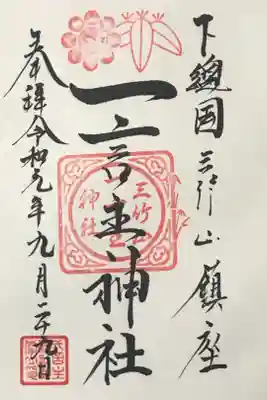 下總国三竹山鎮座
一言主神社
奉拝令和元年九月二十九日
三竹山
神社